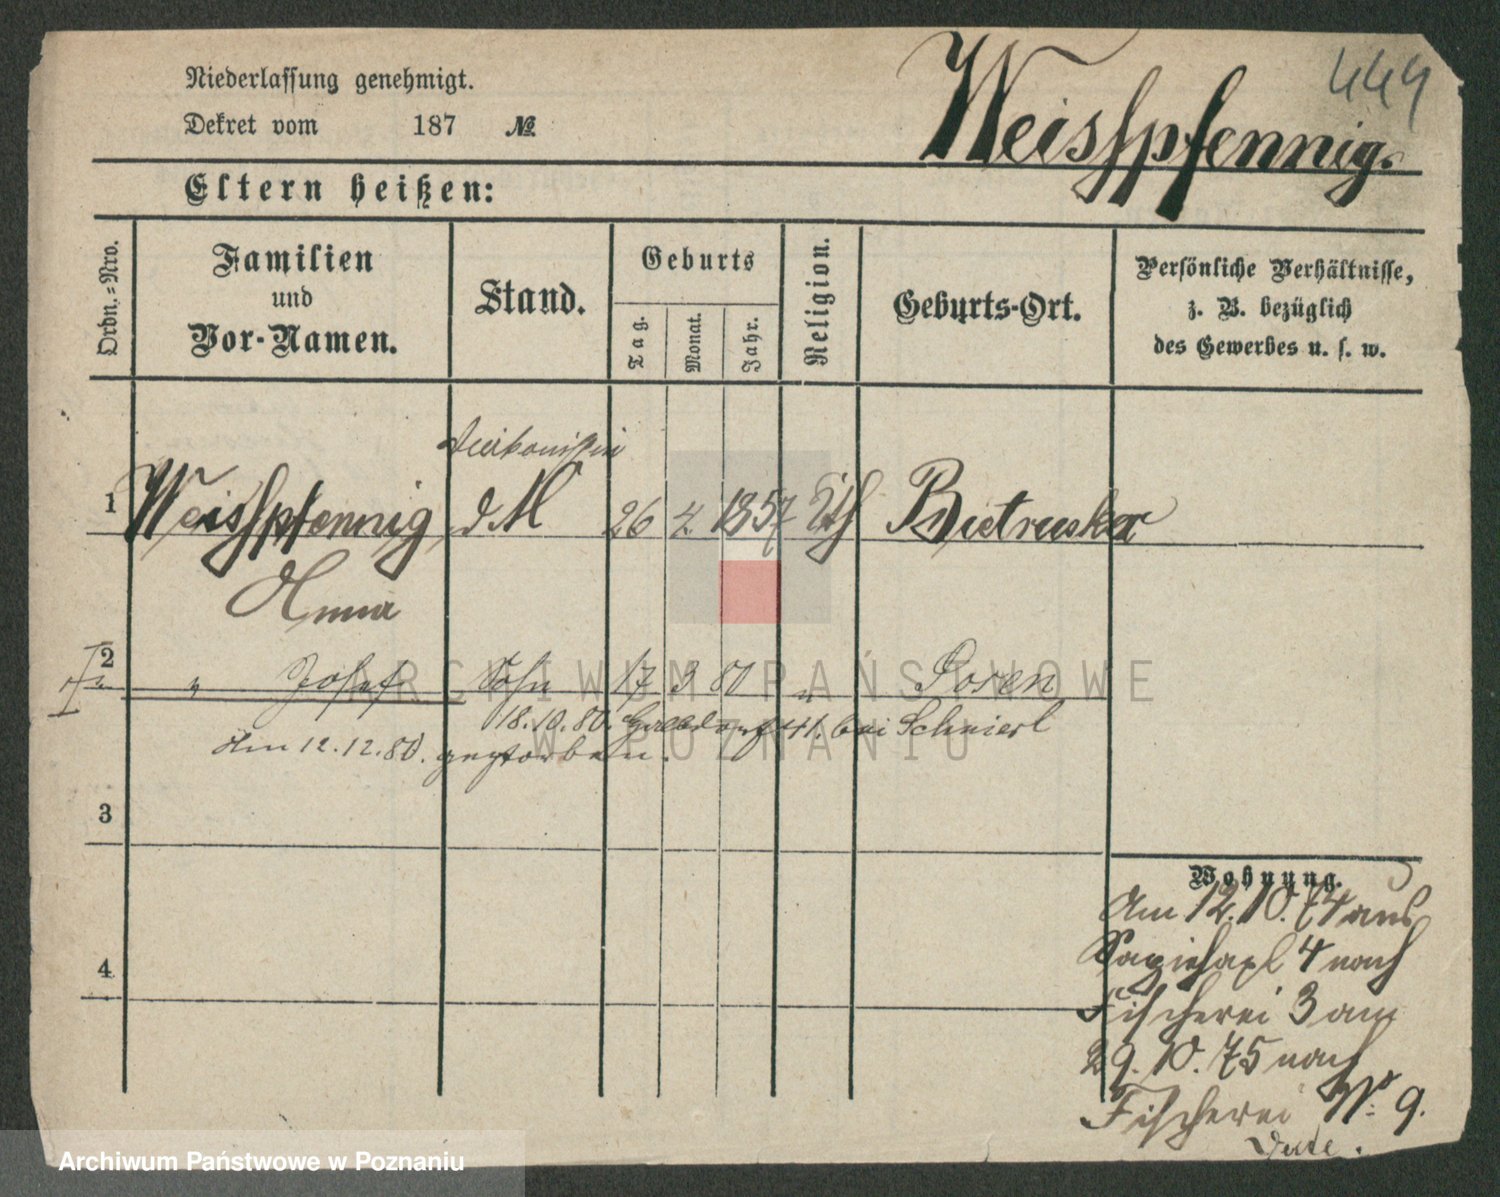 Niederlassung genehmigt.
Dekret vom 187 №
Weisspfennig.
449
Eltern heißen:
Ordn.-Nro.
Familien
und
Vor-Namen.
Stand.
Geburts
Tag.
Monat.
Jahr.
Religion.
Geburts-Ort.
Persönliche Verhältnisse,
z. B. bezüglich
des Gewerbes u. s. w.
1 Weisspfennig d M 26 4. 1857 Kth
Anna
2 " Josef Sohn 17 3 80 " Posen
18.10.80. 41. bei
Am 12.12.80. gestorben.
3
4
Wohnung.
Am 12.10.74 aus
4 nach
Fischerei 3 am
29.10.75 nach
Fischerei № 9.
ARCHIWUM PAŃSTWOWE
W POZNANIU
Archiwum Państwowe w Poznaniu